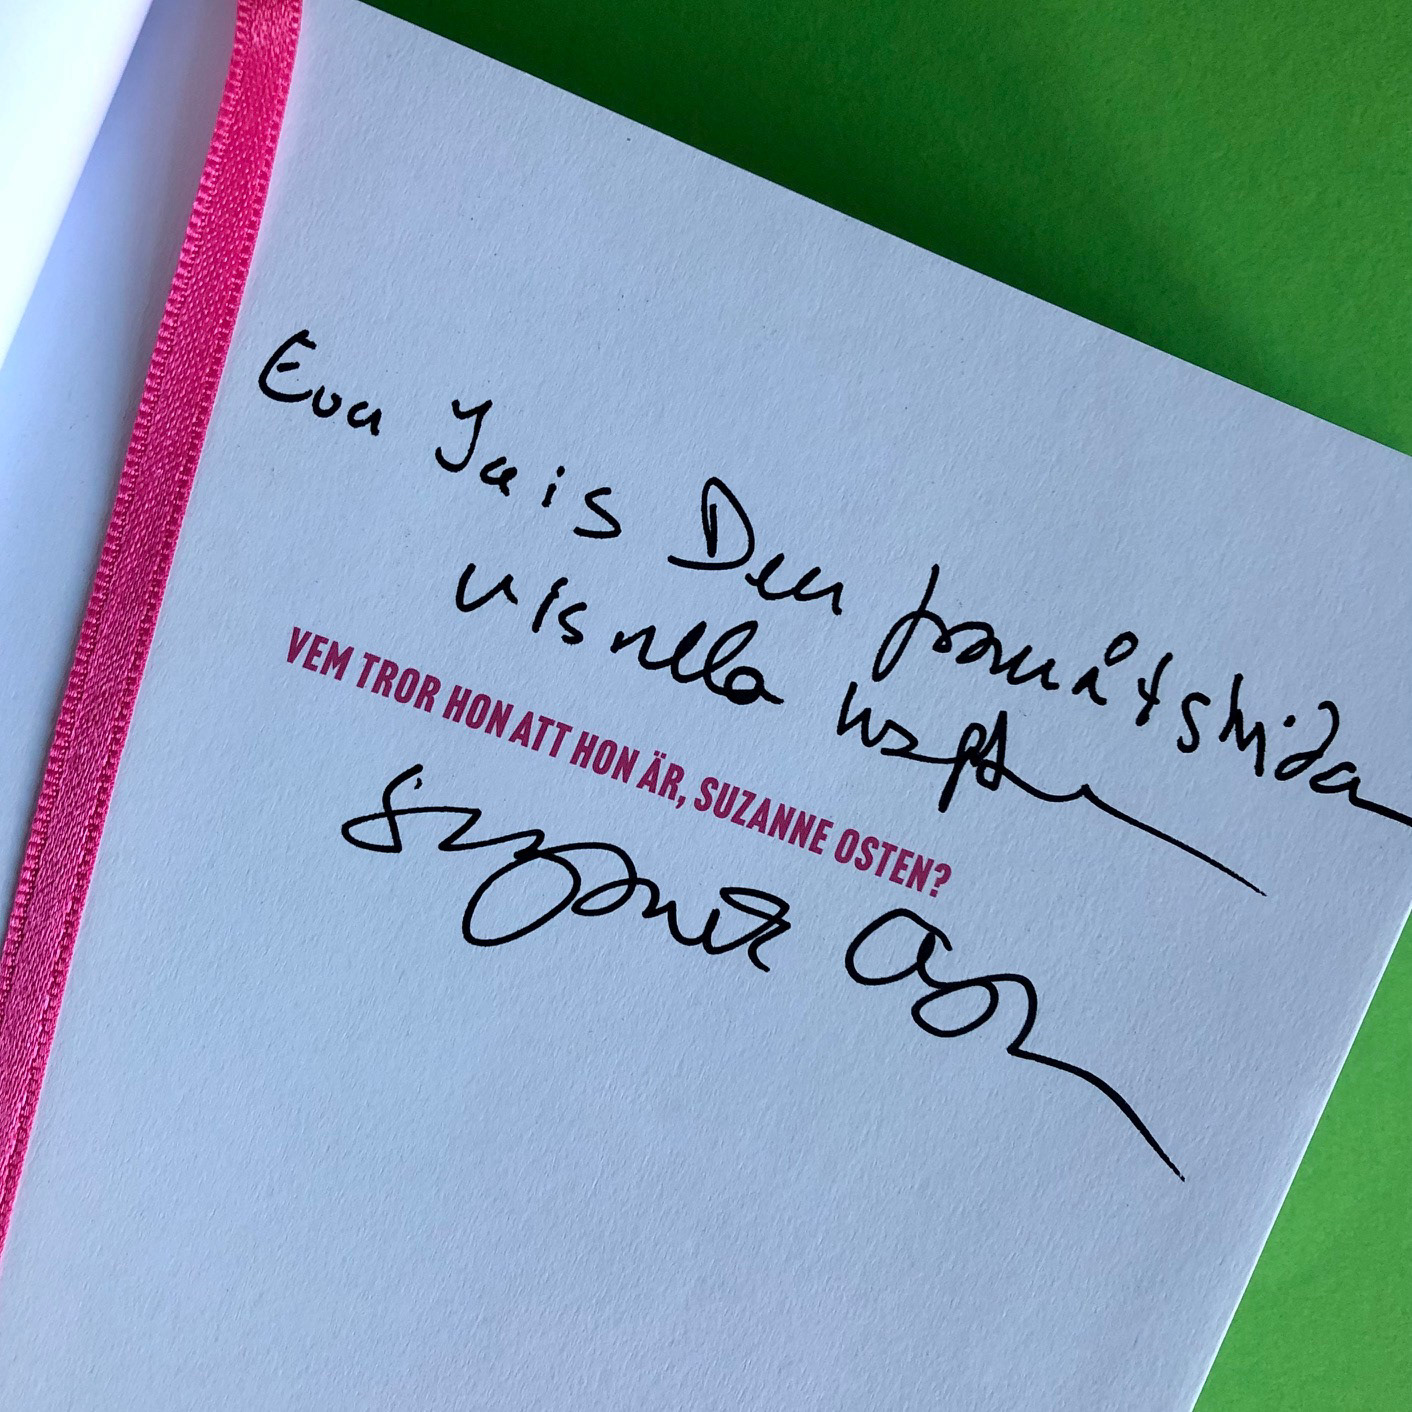 Eva Jais Den framåtskrida
visuella kraften
VEM TROR HON ATT HON ÄR, SUZANNE OSTEN?
Suzanne Osten